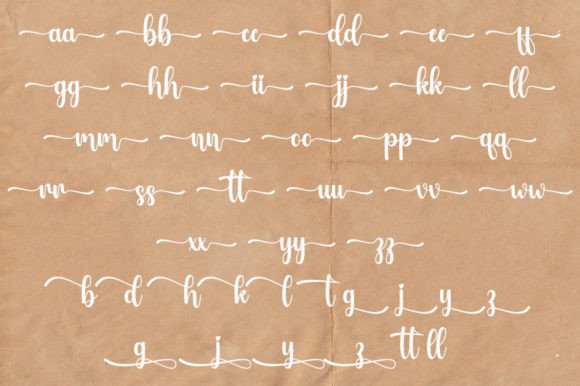 aa bb cc dd ee ff
gg hh ii jj kk ll
mm nn oo pp qq
rr ss tt uu vv ww
xx yy zz
b d h k l t g j y z
g j y z tt ll